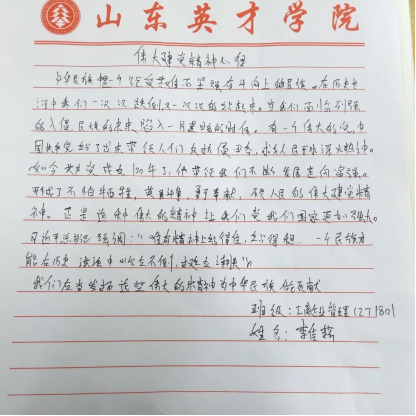 山东英才学院
伟大建党精神心得
中华民族是一个饱受苦难而坚强奋斗向上的民族。在历史长
河中我们一次次跌倒又一次次的站起来。当我们面临列强
的入侵,民族的未来陷入一片黑暗的时候。有一个伟大的党中
国共产党站了出来带领人们反抗侵略,救人民于水深火热中。
如今共产党成立100年了,他带领我们不断发展走向富强。
形成了不怕牺牲,英勇斗争,勇于奉献,不负人民的伟大建党精
神。正是这种伟大的精神让我们党我们国家更加强大。
习近平总书记强调:“唯有精神上站得住、站得稳,一个民族才
能在历史洪流中屹立不倒,挺立潮头”。
我们应当发扬这些伟大的精神为中华民族做贡献
班级:工商企业管理(27180)
姓名:李佳